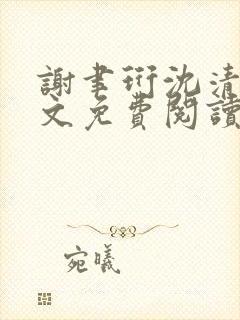 謝書衍沈清
文免費閱讀
宛曦